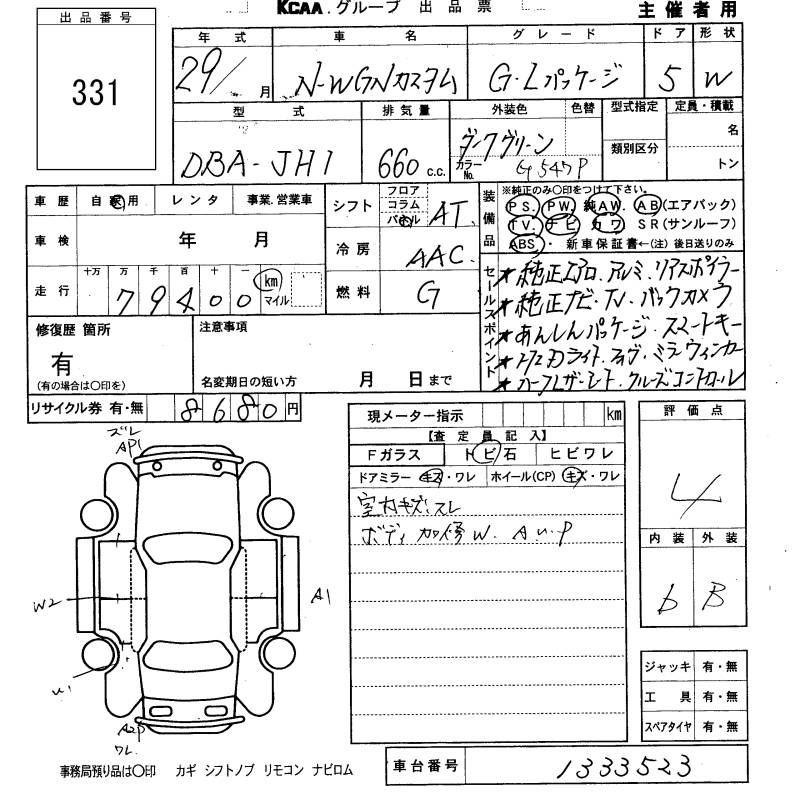 KCAA グループ 出品票
主催者用
出品番号
331
年式 車名 グレード ドア 形状
29/ 月 N-WGNカスタム G・Lパッケージ 5 W
型式 排気量 外装色 色替 型式指定 定員・積載
DBA-JH1 660 c.c. ダークグリーン
カラーNo. G547P
類別区分
名
トン
車歴 自家用 レンタ 事業.営業車
シフト フロア コラム パネル AT
装備品
※純正のみ〇印をつけて下さい。
PS. PW. 純AW. AB(エアバック)
TV. ナビ カワ SR(サンルーフ)
ABS・新車保証書←(注)後日送りのみ
車検 年 月
冷房 AAC
走行 十万 万 千 百 十 一
79400 km マイル
燃料 G
セールスポイント
★純正エアロ.アルミ.リアスポイラー
★純正ナビ・TV.バックカメラ
★あんしんパッケージ.スマートキー
ライト.ミラーウィンカー
★ハーフレザーシート.クルーズコントロール
修復歴 箇所
有
(有の場合は〇印を)
注意事項
名変期日の短い方 月 日まで
リサイクル券 有・無 8680円
現メーター指示 km
【査定員記入】
Fガラス トビ石 ヒビワレ
ドアミラー キズ・ワレ ホイール(CP) キズ・ワレ
室内キズ.スレ
ボディ加修W.A.U.P
評価点
4
内装 外装
b B
ズレ
AP1
W2
A1
U1
A2P
ワレ
ジャッキ 有・無
工具 有・無
スペアタイヤ 有・無
事務局預り品は〇印 カギ シフトノブ リモコン ナビロム
車台番号 1333523